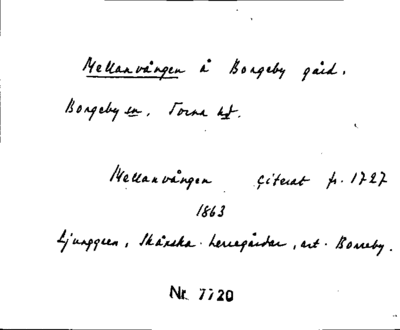 Mellanvången å Borgeby gård.
Borgeby sn. Torna hd.
Mellanvången Citerat fr. 1727
1863
Ljunggren, Skånska herregårdar, art. Borreby.
Nr 7720